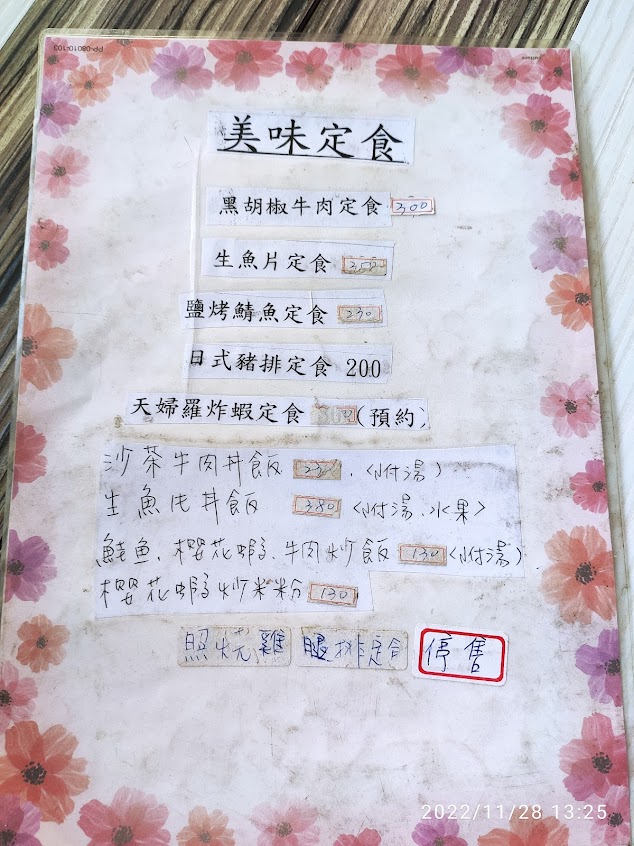 美味定食
黑胡椒牛肉定食 300
生魚片定食 350
鹽烤鯖魚定食 230
日式豬排定食 200
天婦羅炸蝦定食 (預約)
沙茶牛肉丼飯 230. (附湯)
生魚丼飯 380 (附湯、水果)
鮭魚、櫻花蝦、牛肉炒飯 130 (附湯)
櫻花蝦炒米粉 130
照燒雞腿排定食 停售
2022/11/28 13:25